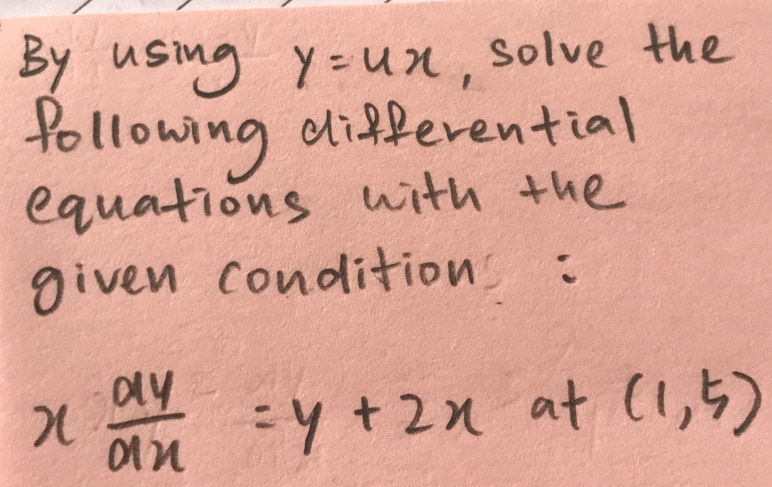 By using y=ux, solve the
following differential
equations with the
given condition :
x dy/dx = y + 2x at (1,5)